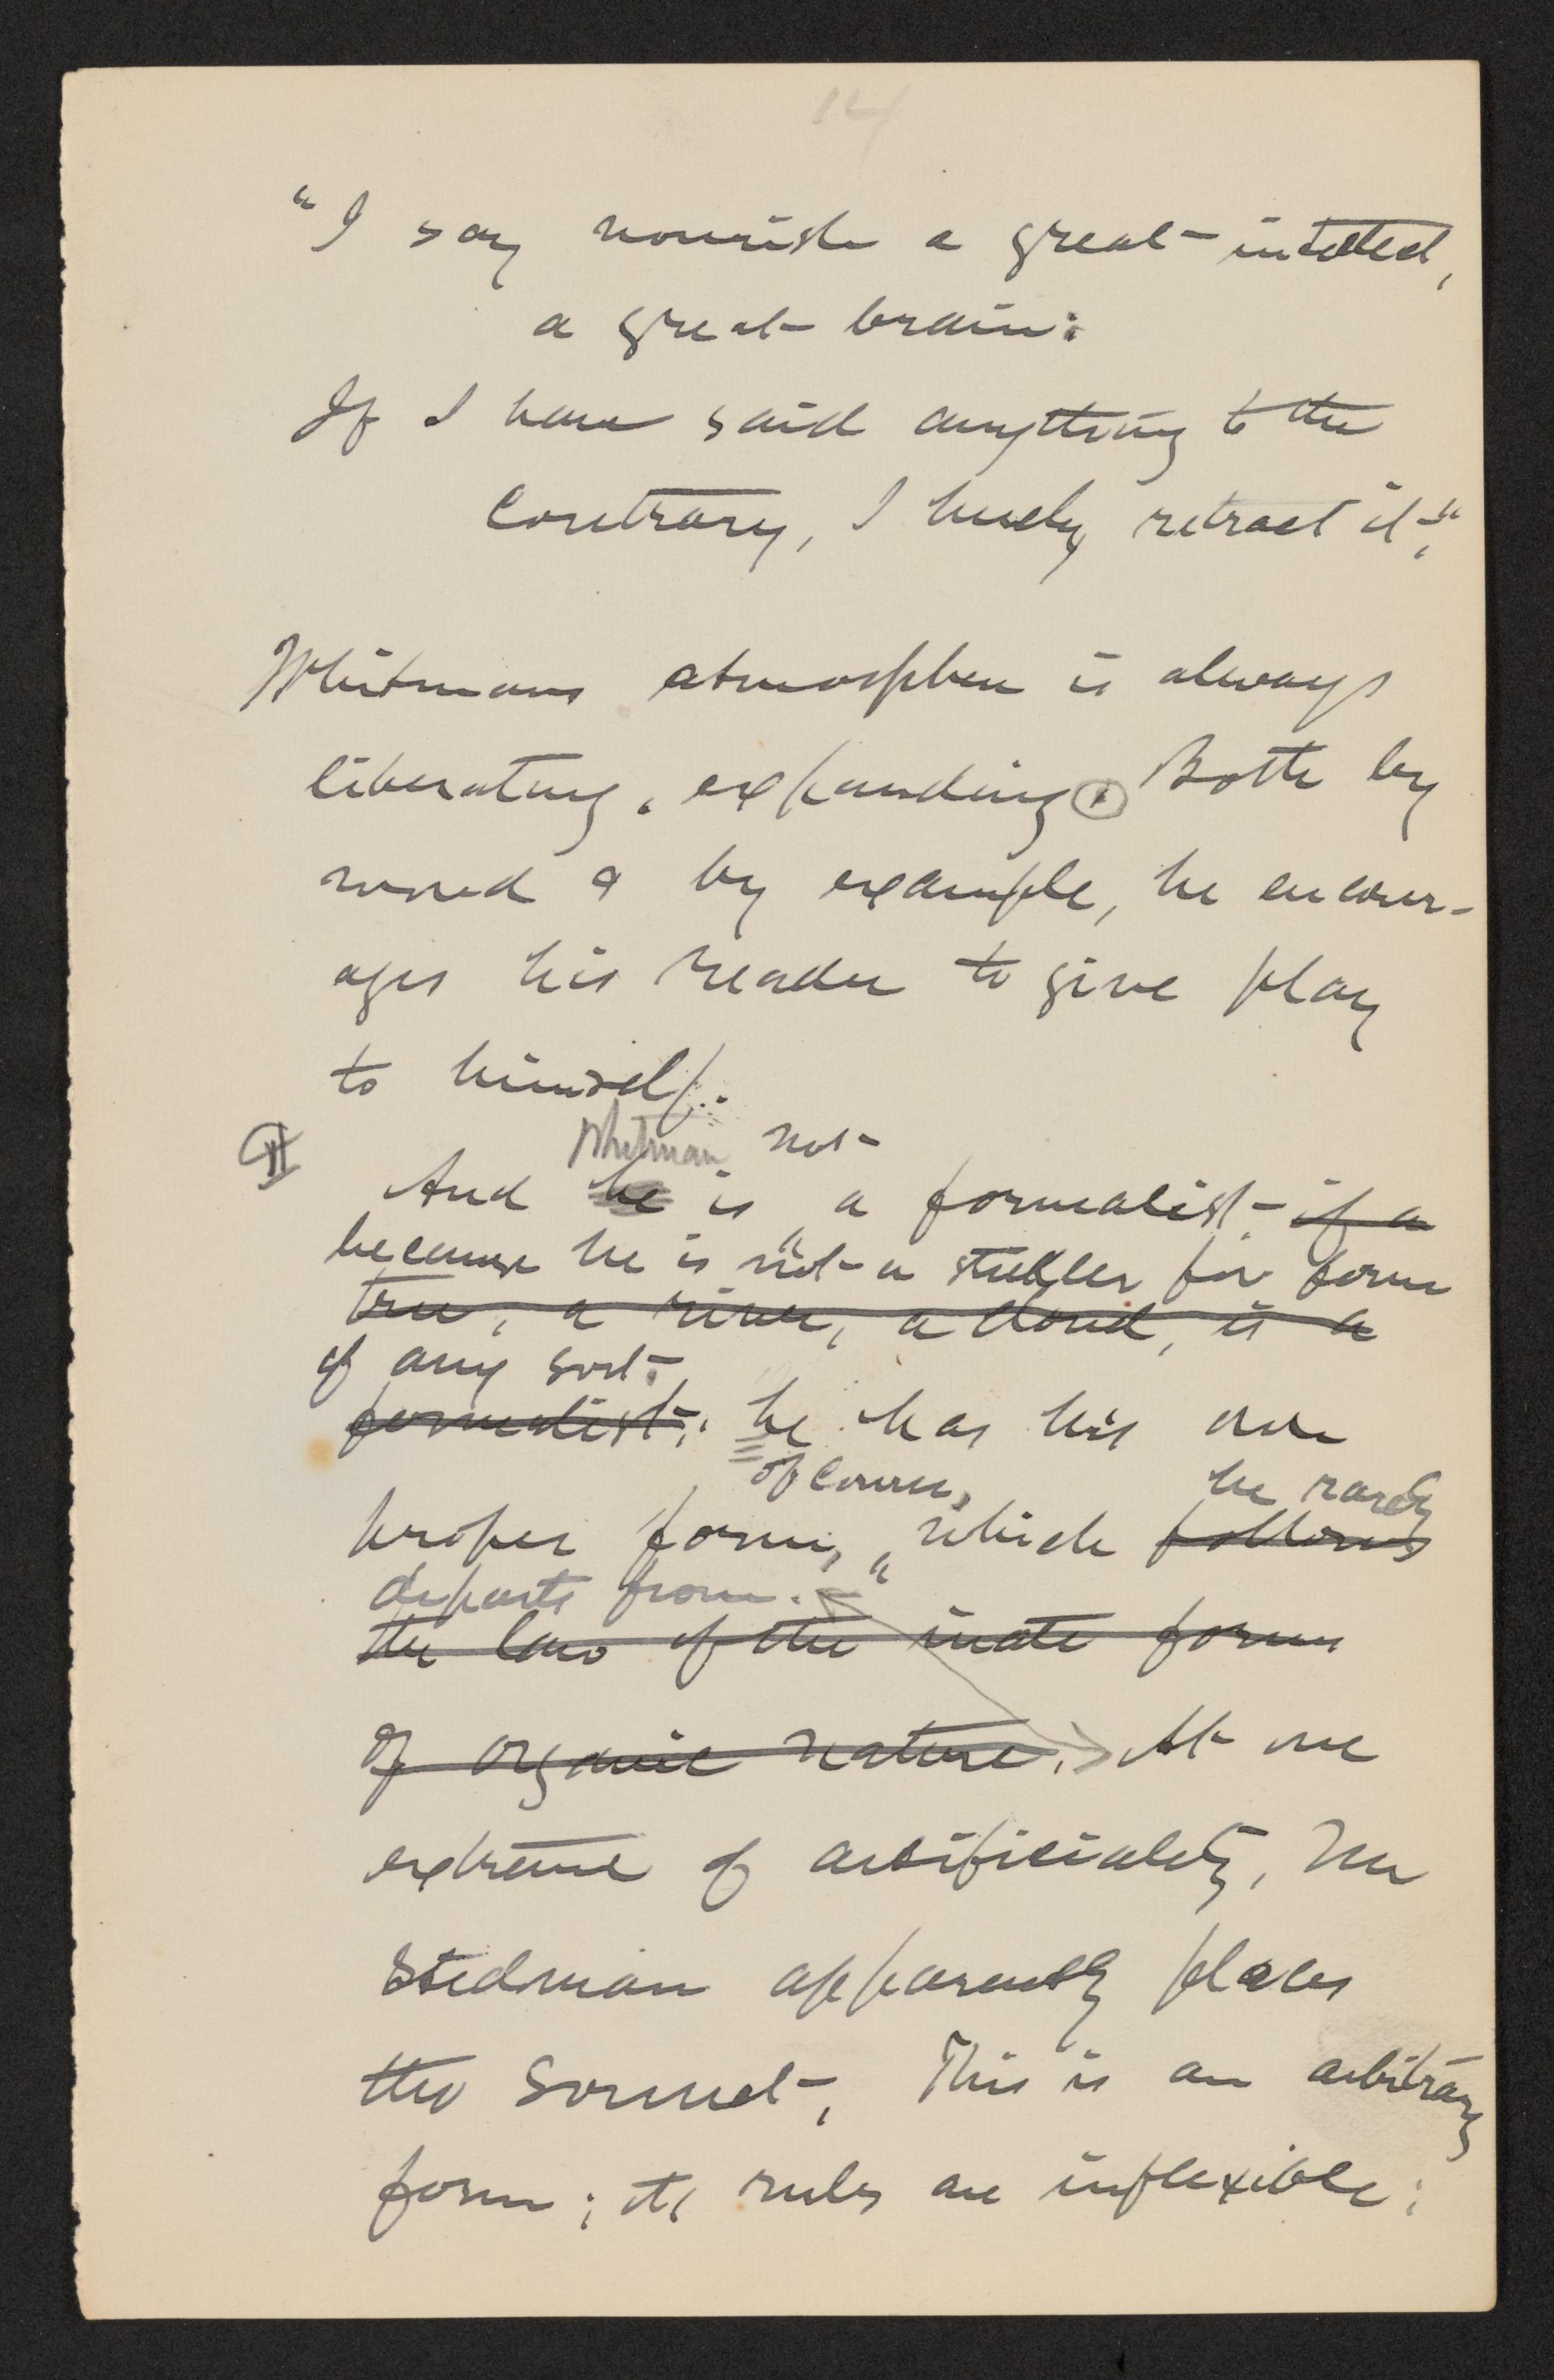 14
"I say nourish a great intellect,
a great brain:
If I have said anything to the
contrary, I hereby retract it."
Whitmans atmosphere is always
liberating, expanding. Both by
word & by example, he encour-
ages his reader to give play
to himself.
Whitman not
¶ And he is a formalist if a
because he is not a stickler for form
tree, a river, a cloud, is a
of any sort.
formalist; he has his own
of course, he rarely
proper form, which follows
departs from.
the law of the inate forms
of organic nature. At one
extreme of artificiality, Mr
Stedman apparently places
the Sonnet; This is an arbitrary
form; its rules are inflexible;